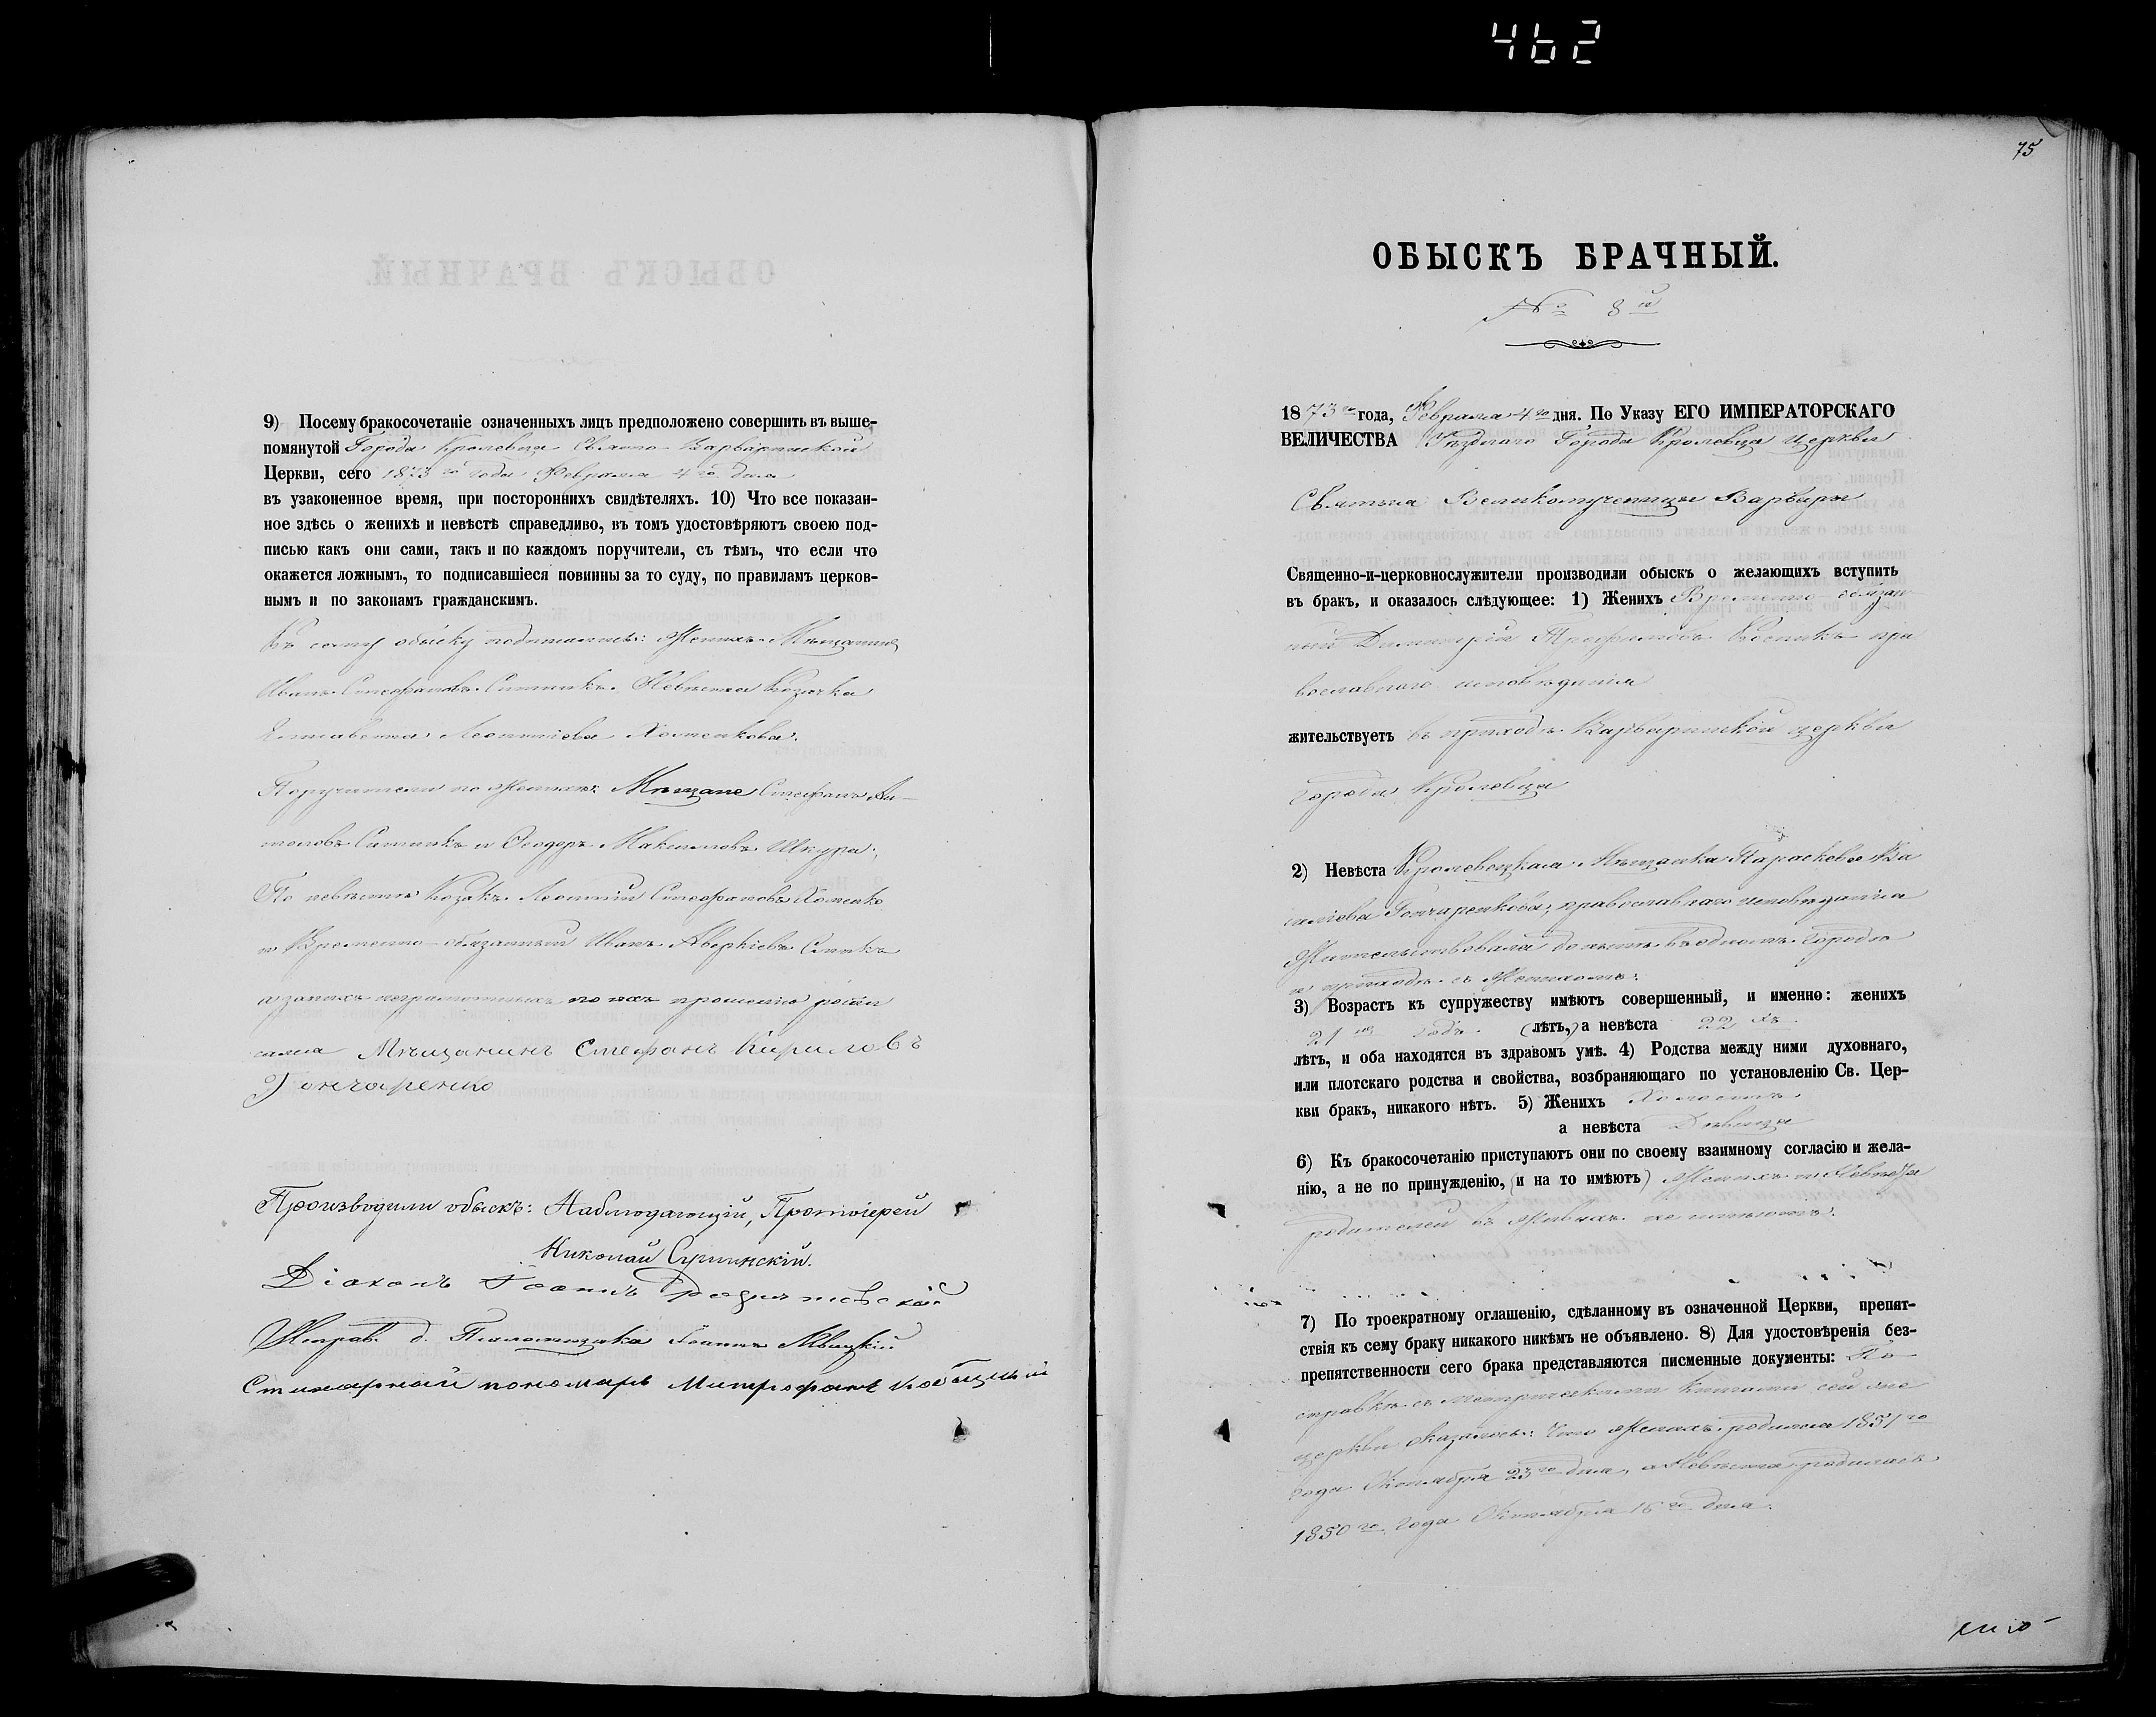 462
9) Посему бракосочетаніе означенныхъ лицъ предположено совершить въ выше-
помянутой Города Кролевца Свято-Варваринской
Церкви, сего 1873го года Февраля 4го дня
въ узаконенное время, при постороннихъ свидѣтеляхъ. 10) Что все показан-
ное здѣсь о женихѣ и невѣстѣ справедливо, въ томъ удостовѣряютъ своею под-
писью какъ они сами, такъ и по каждомъ поручители, съ тѣмъ, что если что
окажется ложнымъ, то подписавшіеся повинны за то суду, по правиламъ церков-
нымъ и по законамъ гражданскимъ.
Къ сему обыску подписались: Женихъ Мѣщанинъ
Иванъ Стефановъ Ситникъ. Невѣста Козачка
Елисавета Леонтіева Хоменкова.
Поручители по женихѣ: Мѣщане Стефанъ Ан-
тоновъ Ситникъ и Ѳеодоръ Максимовъ Шкура;
По невѣстѣ Козакъ Леонтій Стефановъ Хоменко
и Временно-обязанный Иванъ Аверкіевъ
а за нихъ неграмотныхъ по ихъ прошенію
Мѣщанинъ Стефанъ Кириловъ
Гончаренко
Производили обыскъ: Наблюдающій, Протоіерей
Николай
Діаконъ Іоаннъ
Исправ. д. Псаломщика Іоаннъ
Стихарный пономарь Митрофанъ
75
ОБЫСКЪ БРАЧНЫЙ.
№ 8й
1873го года, Февраля 4го дня. По Указу ЕГО ИМПЕРАТОРСКАГО
ВЕЛИЧЕСТВА Уѣзднаго Города Кролевца церкви
Святыя Великомученицы Варвары
Священно-и-церковнослужители производили обыскъ о желающихъ вступить
въ бракъ, и оказалось слѣдующее: 1) Женихъ Временно-обязан-
ный Димитрій Трофимовъ пра
вославнаго исповѣданія
жительствуетъ въ приходѣ Варваринской церкви
города Кролевца
2) Невѣста Кролевецкая Мѣщанка Параскева Ва
силіева Гончаренкова, православнаго исповѣданія
Жительствовала до нынѣ въ одномъ городѣ
и приходѣ съ Женихомъ:
3) Возрастъ къ супружеству имѣютъ совершенный, и именно: женихъ
21 годъ (лѣтъ,) а невѣста 22 хъ
лѣтъ, и оба находятся въ здравомъ умѣ. 4) Родства между ними духовнаго,
или плотскаго родства и свойства, возбраняющаго по установленію Св. Цер-
кви бракъ, никакого нѣтъ. 5) Женихъ Холостъ
а невѣста Дѣвица
6) Къ бракосочетанію приступаютъ они по своему взаимному согласію и жела-
нію, а не по принужденію, (и на то имѣютъ) Женихъ и Невѣста
родителей въ живыхъ не имѣютъ.
7) По троекратному оглашенію, сдѣланному въ означенной Церкви, препят-
ствія къ сему браку никакого никѣмъ не объявлено. 8) Для удостовѣренія без-
препятственности сего брака представляются писменные документы: По
справкѣ съ метрическими книгами сей же
церкви оказалось: что Женихъ родился 1851го
года Октября 23го дня, а Невѣста родилась
1850го года Октября 16го дня.